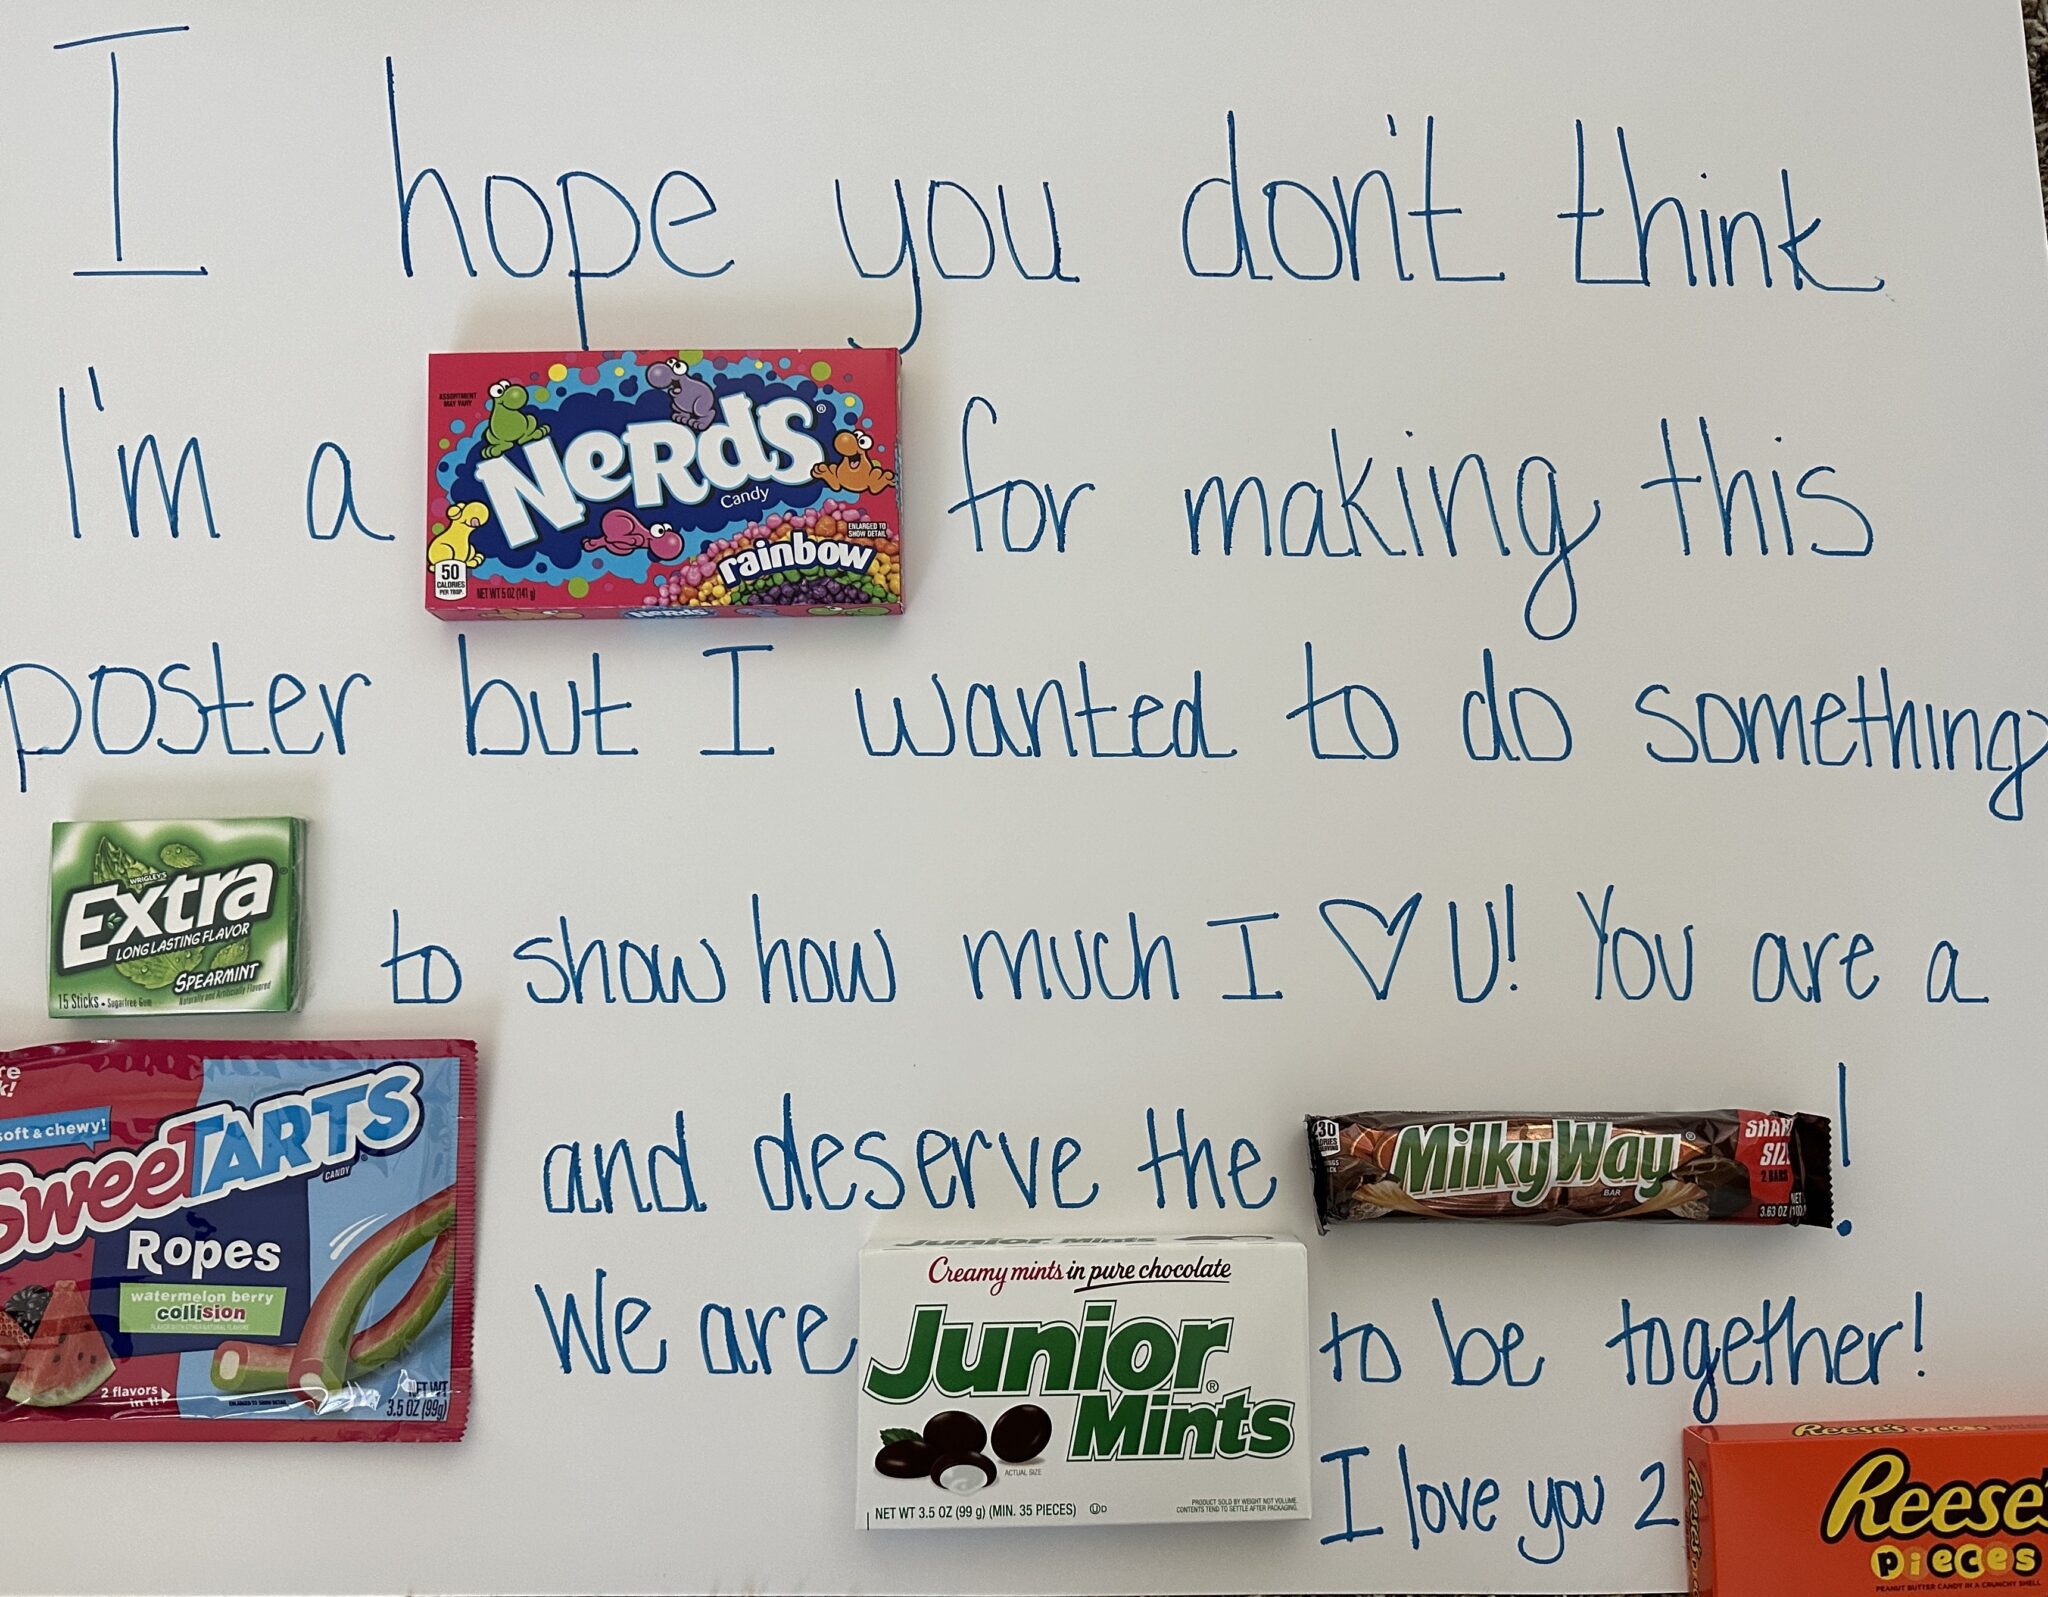 I hope you don't think
I'm a
ASSORTMENT
MAY VARY
NeRdS
Candy
rainbow
ENLARGED TO
SHOW DETAIL
50
CALORIES
PER TBSP.
NET WT 5 OZ (141 g)
Nerds
for making this
poster but I wanted to do something
WRIGLEY'S
Extra
LONG LASTING FLAVOR
SPEARMINT
15 Sticks • Sugarfree Gum
Naturally and Artificially Flavored
to show how much I ♡ U! You are a
soft & chewy!
SweeTARTS
CANDY
Ropes
watermelon berry
collision
2 flavors
in 1!
NET WT
3.5 OZ (99g)
and deserve the
230
MilkyWay
BAR
SHAR
SIZ
2 BARS
NET
3.63 OZ
!
We are
Junior Mints
Creamy mints in pure chocolate
Junior
Mints
ACTUAL SIZE
NET WT 3.5 OZ (99 g) (MIN. 35 PIECES)
PRODUCT SOLD BY WEIGHT NOT VOLUME.
CONTENTS TEND TO SETTLE AFTER PACKAGING.
to be together!
I love you 2
Reese's pieces
Reese's
Pieces
PEANUT BUTTER CANDY IN A CRUNCHY SHELL